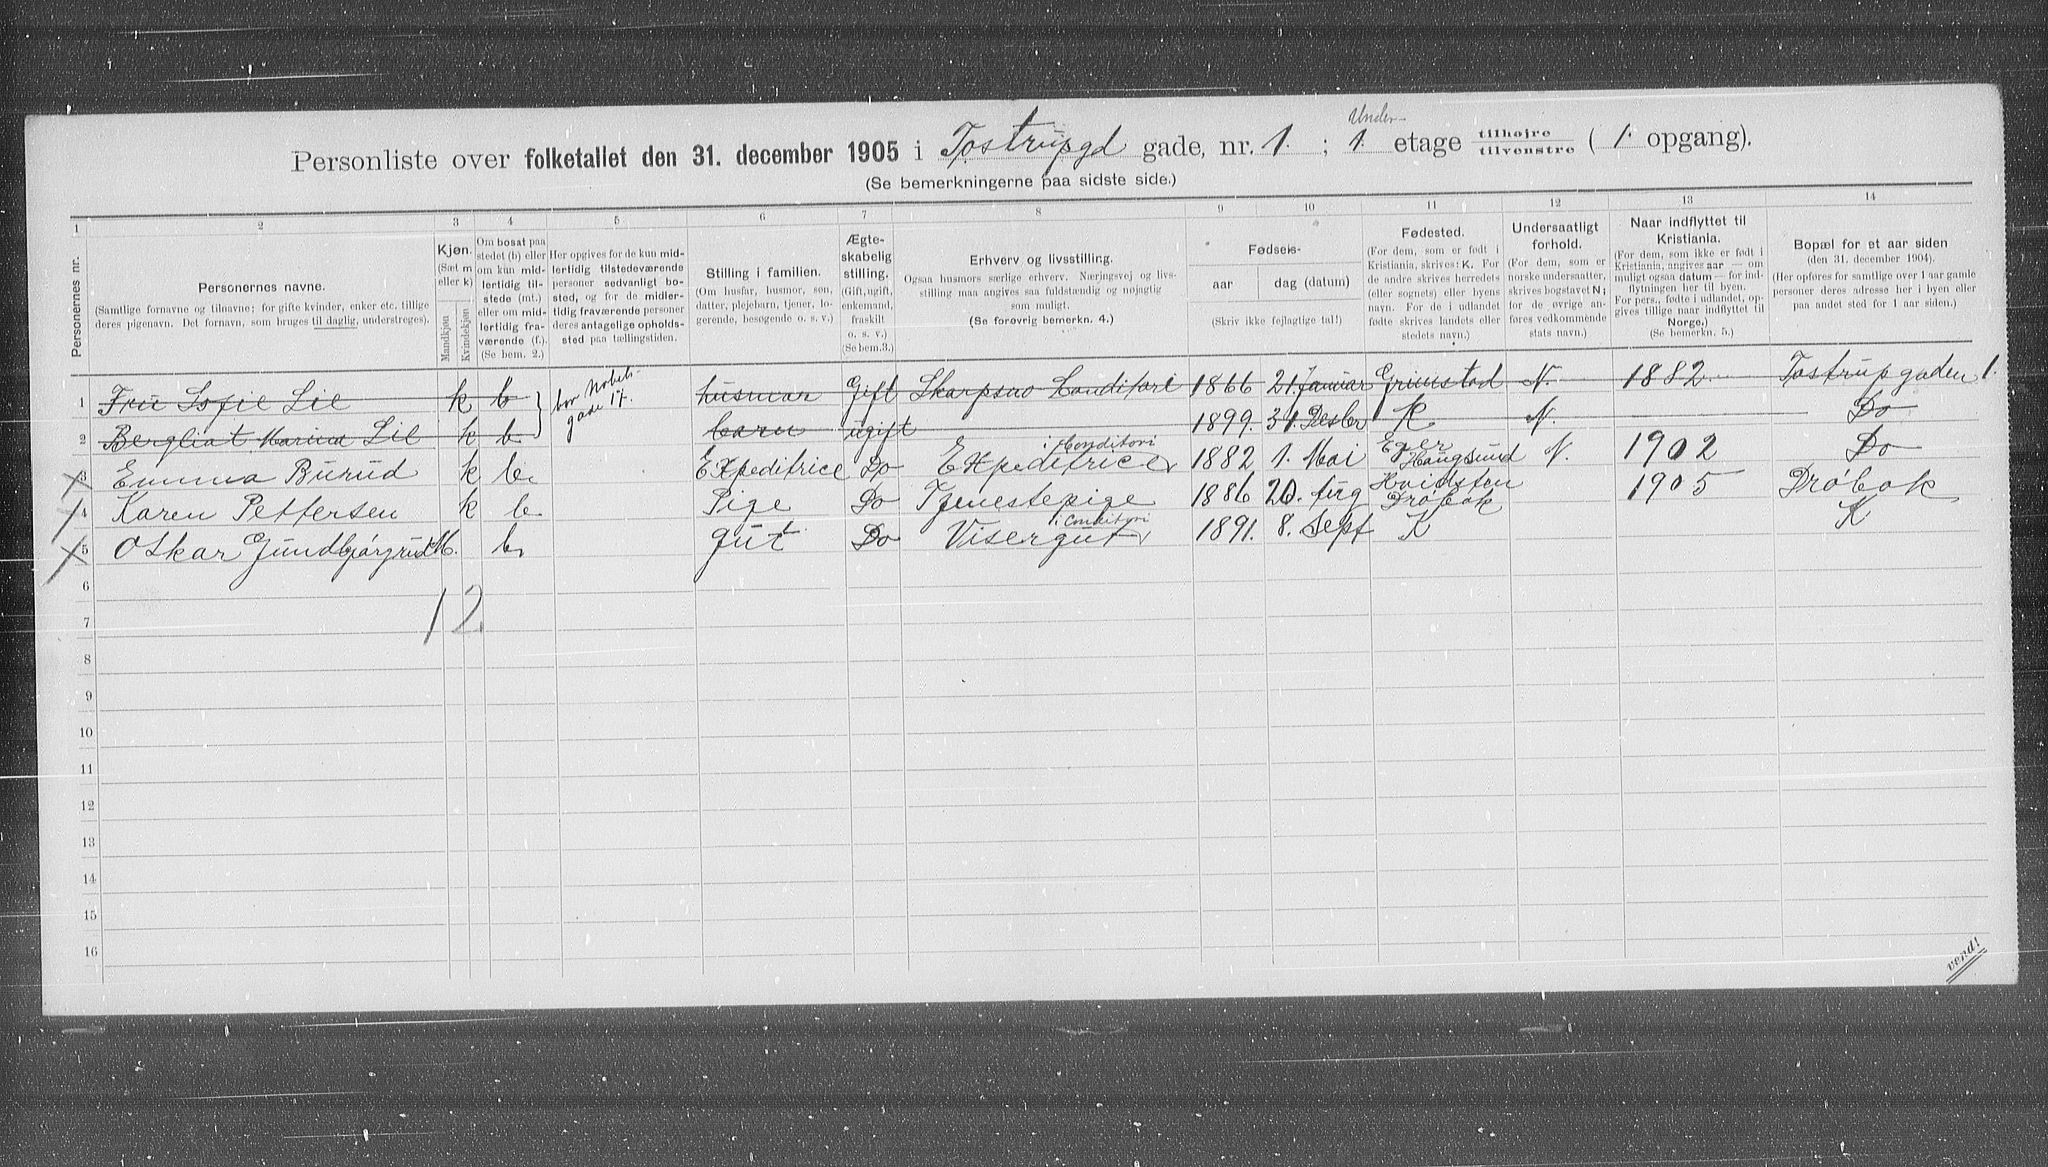 Under-
Personliste over folketallet den 31. december 1905 i Tostrupgd gade, nr. 1. ; 1. etage tilhøjre tilvenstre ( 1. opgang).
(Se bemerkningerne paa sidste side.)
1 2 3 4 5 6 7 8 9 10 11 12 13 14
Personernes nr.
Personernes navne.
(Samtlige fornavne og tilnavne; for gifte kvinder, enker etc. tillige
deres pigenavn. Det fornavn, som bruges til daglig, understreges).
Kjøn.
(Sæt m
eller k)
Mandkjøn
Kvindekjøn
Om bosat paa
stedet (b) eller
om kun mid-
lertidig til-
stede (mt.)
eller om mid-
lertidig fra-
værende (f.).
(Se bem. 2.)
Her opgives for de kun mid-
lertidig tilstedeværende
personer sedvanligt bo-
sted, og for de midler-
tidig fraværende personer
deres antagelige opholds-
sted paa tællingstiden.
Stilling i familien.
(Om husfar, husmor, søn,
datter, plejebarn, tjener, lo-
gerende, besøgende o. s. v.)
Ægte-
skabelig
stilling.
(Gift, ugift,
enkemand,
fraskilt
o. s. v.)
(Se bem.3.)
Erhverv og livsstilling.
Ogsaa husmors særlige erhverv. Næringsvej og livs-
stilling maa angives saa fuldstændig og nøjagtig
som muligt.
(Se forøvrig bemerkn. 4.)
Fødsels-
aar
dag (datum)
(Skriv ikke fejlagtige tal!)
Fødested.
(For dem, som er født i
Kristiania, skrives: K. For
de andre skrives herredets
(eller sognets) eller byens
navn. For de i udlandet
fødte skrives landets eller
stedets navn.)
Undersaatligt
forhold.
(For dem, som er
norske undersaatter,
skrives bogstavet N;
for de øvrige an-
føres vedkommende
stats navn.)
Naar indflyttet til
Kristiania.
(For dem, som ikke er født i
Kristiania, angives aar — om
muligt ogsaa datum — for ind-
flytningen her til byen.
For pers., fødte i udlandet, op-
gives tillige naar indflyttet til
Norge.)
(Se bemerkn. 5.)
Bopæl for et aar siden
(den 31. december 1904).
(Her opføres for samtlige over 1 aar gamle
personer deres adresse her i byen eller
paa andet sted for 1 aar siden.)
1 Fru Sofie Lie k b bor Nobels- gade 17. husmor Gift Skarpsno Konditori 1866 21 Januar Grimstad N. 1882 Tostrupgaden 1.
2 Bergliot Marina Lie k b barn ugift 1899. 31. Desbr K N. Do
3 Emma Burud k b. Expeditrice Do Expeditrice i Conditori 1882 1. Mai Eger Haugsund N. 1902 Do
4 Karen Pettersen k b Pige Do Tjenestepige 1886 20. Aug Hvidsten Drøbak 1905 Drøbak
5 Oskar Gundbjørgrud M. b. gut Do Visergut i Conditori 1891. 8. Sept K K
6
12
7
8
9
10
11
12
13
14
15
16
vend!